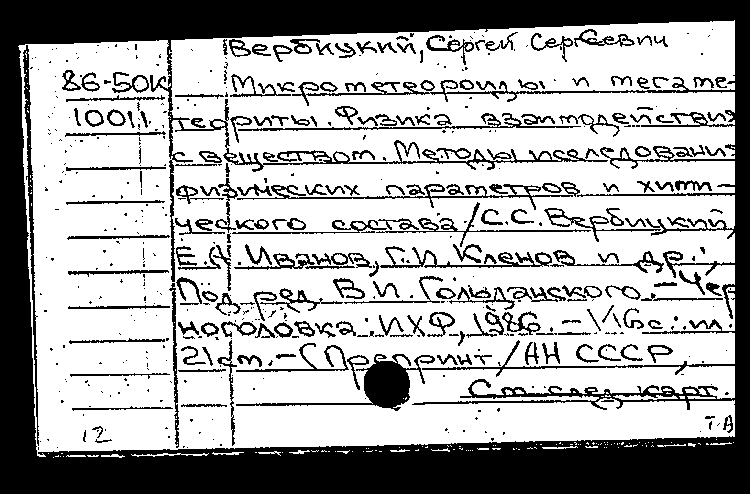 Вербицкий, Сергей Сергеевич
86-50К Микрометеороиды и мегаме-
10011 теориты. Физика взаимодействия
с веществом. Методы иследования
физических параметров и хими-
ческого состава / С.С. Вербицкий,
Е.А. Иванов, Г.И. Кленов и др.;
Под ред. В.И. Гольданского. - Чер
ноголовка: ИХФ, 1986. - 16 с.: ил.
21 см. - (Препринт. / АН СССР,
См. след. карт.
12 Т.А